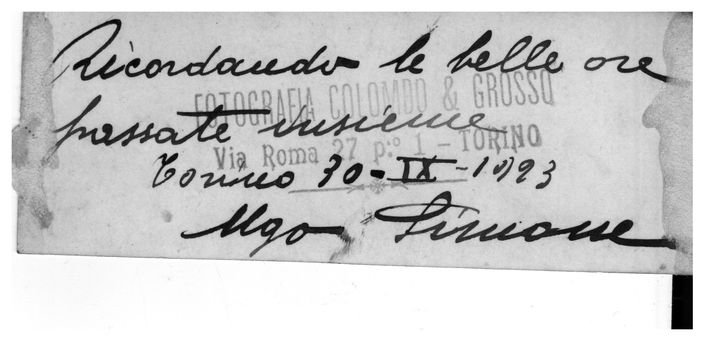 Ricordando le belle ore
FOTOGRAFIA COLOMBO & GROSSO
passate insieme
Via Roma 27 p:º 1 - TORINO
Torino 30-IX-1923
Ugo Simone